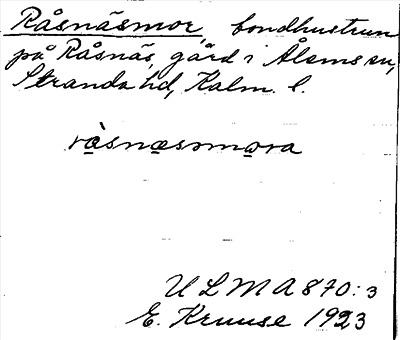 Råsnäsmor, bondhustrun
på Råsnäs, gård i Ålems sn,
Stranda hd, Kalm. l.
ràsnæsmora
ULMA 870:3
E. Kruuse 1923